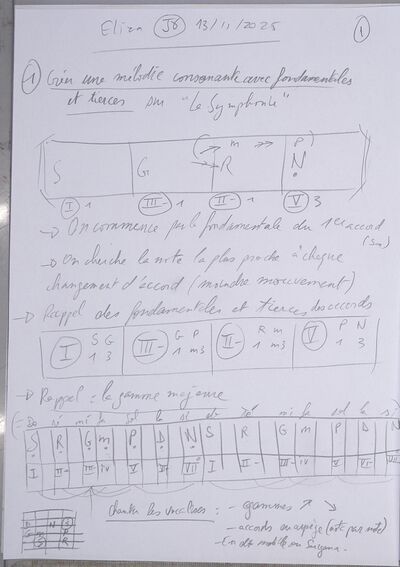 Elisa J8 13/11/2025 1
1 Créer une mélodie consonante avec fondamentales
et tierces sur "Le Symphonie"
m P
S G R N
I 1 III- 1 II- 1 V 3
→ On commence par la fondamentale du 1er accord
→ On cherche la note la plus proche à chaque
changement d'accord (moindre mouvement)
→ Rappel des fondamentales et tierces des accords
S G G P R m P N
I 1 3 III- 1 m3 II- 1 m3 V 1 3
→ Rappel : la gamme majeure
S R G m P D N S R G m P D N
I II- III- IV V VI- VII I II- III- IV V VI- VII
chanter les vocalises : - gammes ↗ ↘
- accords en arpège (note par note)